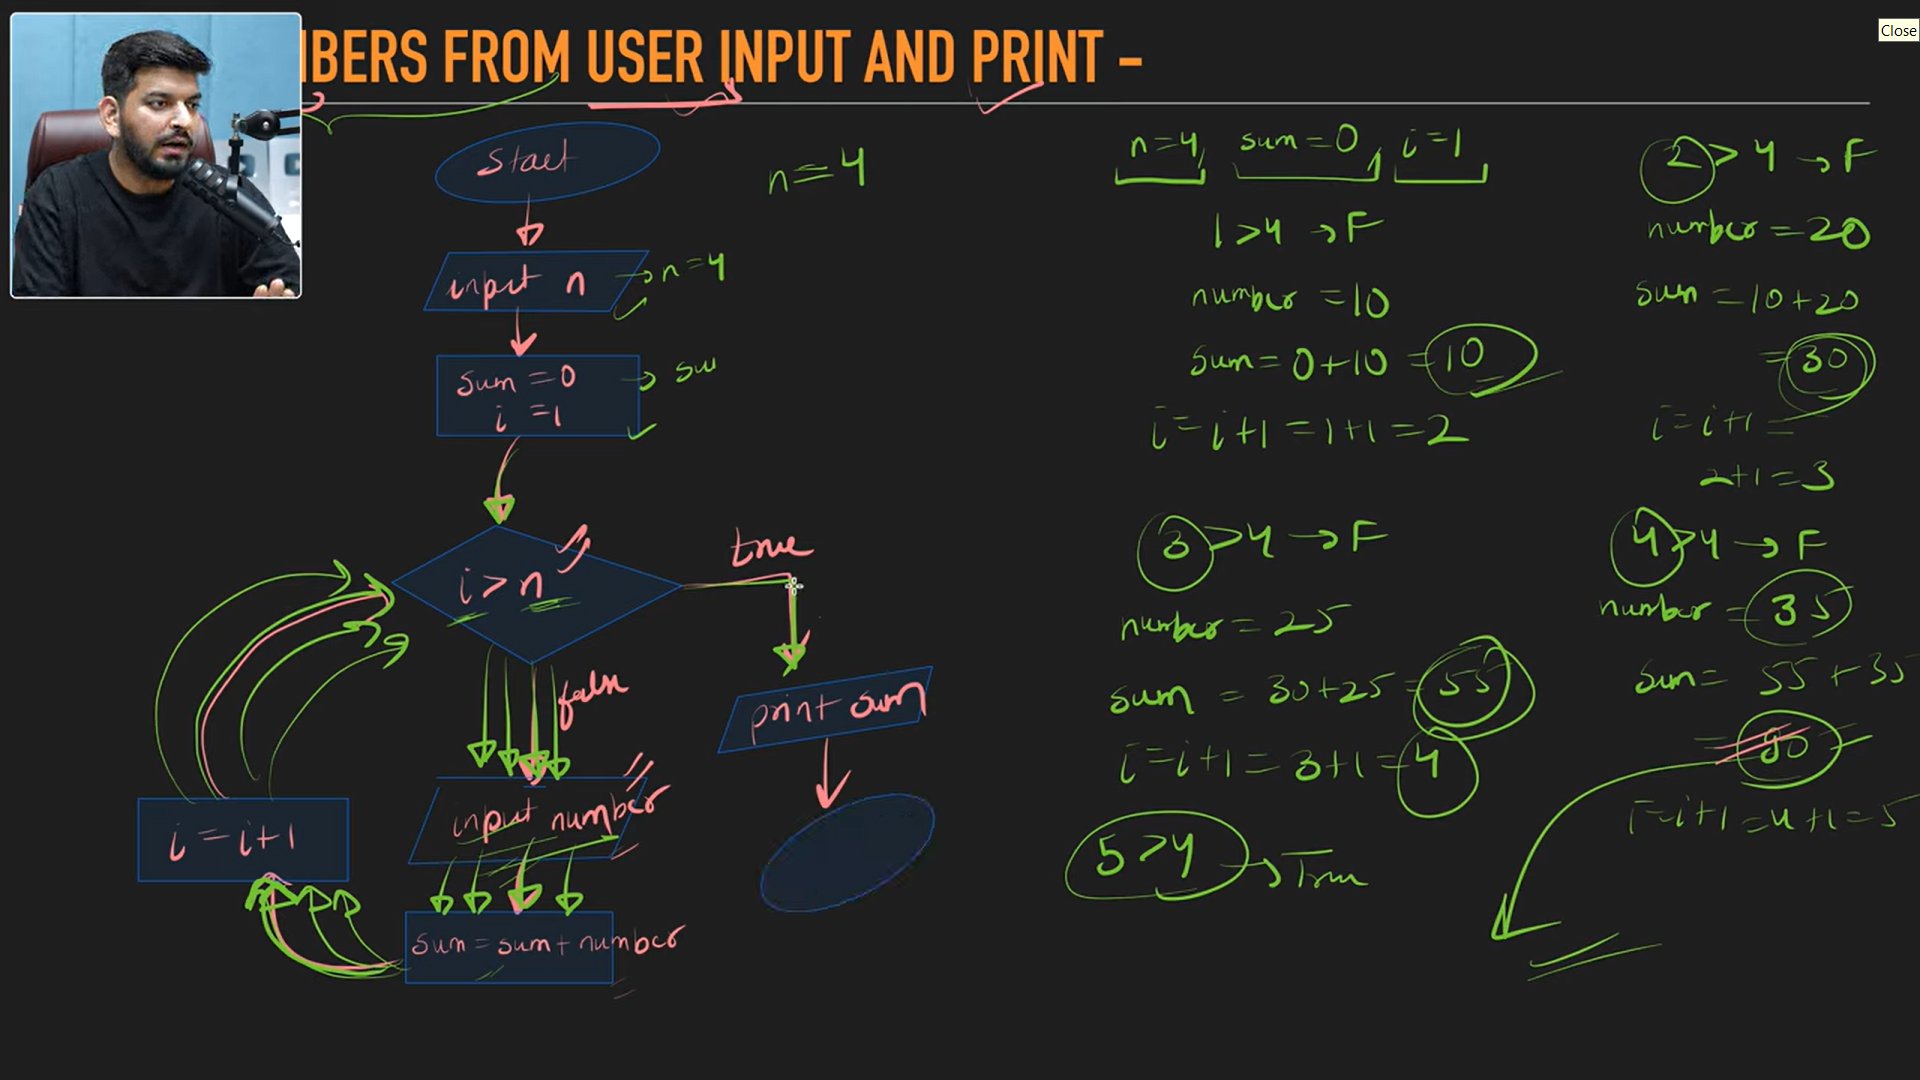 BERS FROM USER INPUT AND PRINT -
Close
start
input n
→ n=4
sum = 0
i = 1
→ su
i > n
true
false
print sum
input number
i = i+1
sum = sum + number
n = 4
n=4 sum=0 i=1
1 > 4 → F
number = 10
sum = 0+10 = 10
i = i+1 = 1+1 = 2
2 > 4 → F
number = 20
sum = 10+20
= 30
i = i+1 =
2+1 = 3
3 > 4 → F
number = 25
sum = 30+25 = 55
i = i+1 = 3+1 = 4
4 > 4 → F
number = 35
sum = 55 + 35
= 90
i = i+1 = 4+1 = 5
5 > 4 → True